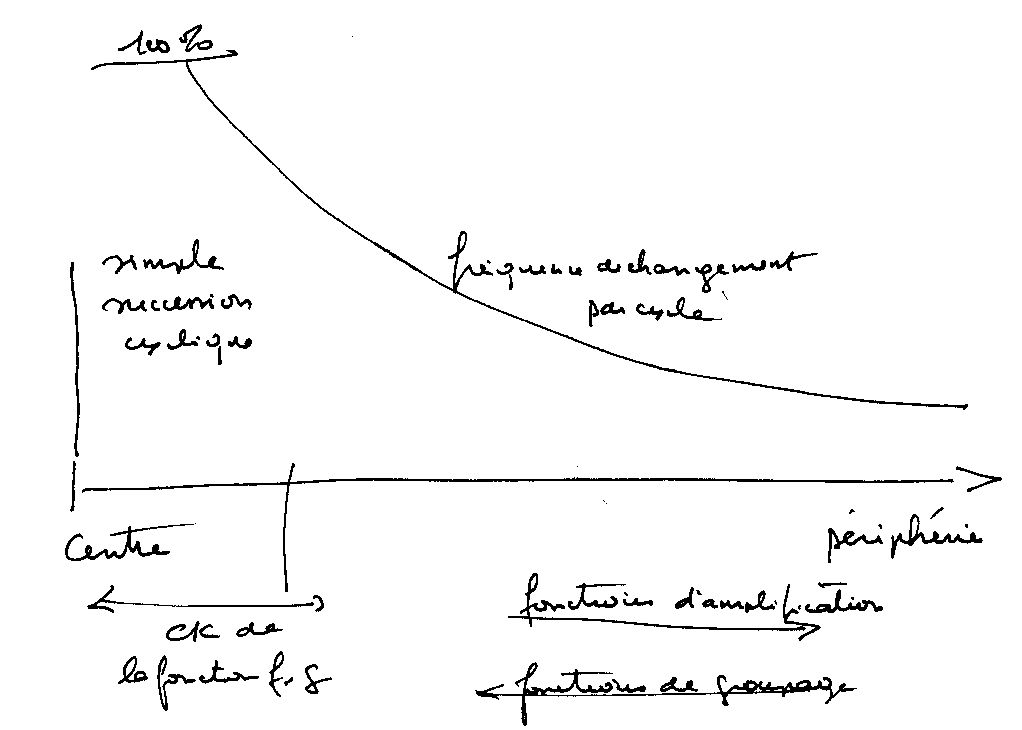 100%
simple
succession
cyclique
fréquence de changement
par cycle
Centre
périphérie
fonctions d'amplification
de
la fonction f, g
fonctions de groupage